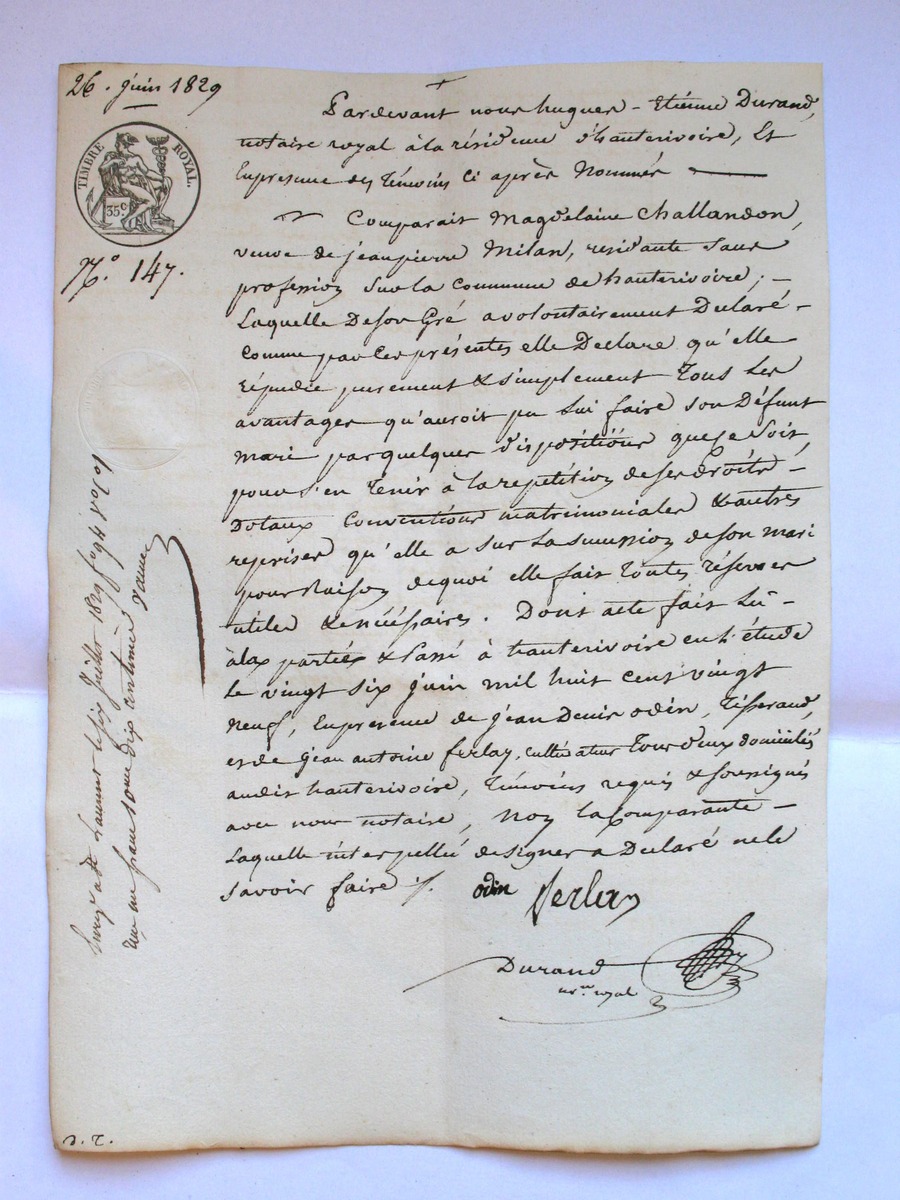 26. juin 1829
TIMBRE ROYAL.
35c
N.o 147.
Pardevant nous hugues - Etienne Durand,
notaire royal à la résidence d'hauterivoire, Et
En presence des Témoins Ci après Nommés
Comparait Magdelaine Challandon,
veuve de jean pierre Milan, residante Sans
profession Sur la Commune de hauterivoire ; -
Laquelle De son Gré a volontairement Declaré -
Comme par Ces présentes elle Declare qu'elle
répudie purement & simplement Tous Les
avantages qu'auroit pu Lui faire son Défunt
mari par quelques dispositions que Ce Soit,
pour s'en Tenir à la repétition de ses droits -
Dotaux Conventions matrimoniales & autres
reprises qu'elle a sur La Sucession de son mari
pour Raison de quoi elle fait Toutes réserves
utiles & nécéssaires. Dont acte fait Lû -
à la partie & Passé à hauterivoire en L'étude
Le vingt six juin mil huit cent vingt
neuf, En presence de jean Denis odin, Tisserand,
et de jean antoine ferlay, Cultivateur Tous deux domiciliés
audit hauterivoire, Témoins requis & soussignés
avec nous notaire, Non la Comparante -
Laquelle interpellée de signer a Declaré ne le
savoir faire ./.
odin ferlay
Durand
nre royal
à St Laurent le six juillet 1829 fo 46
un franc dix centimes
D. R.